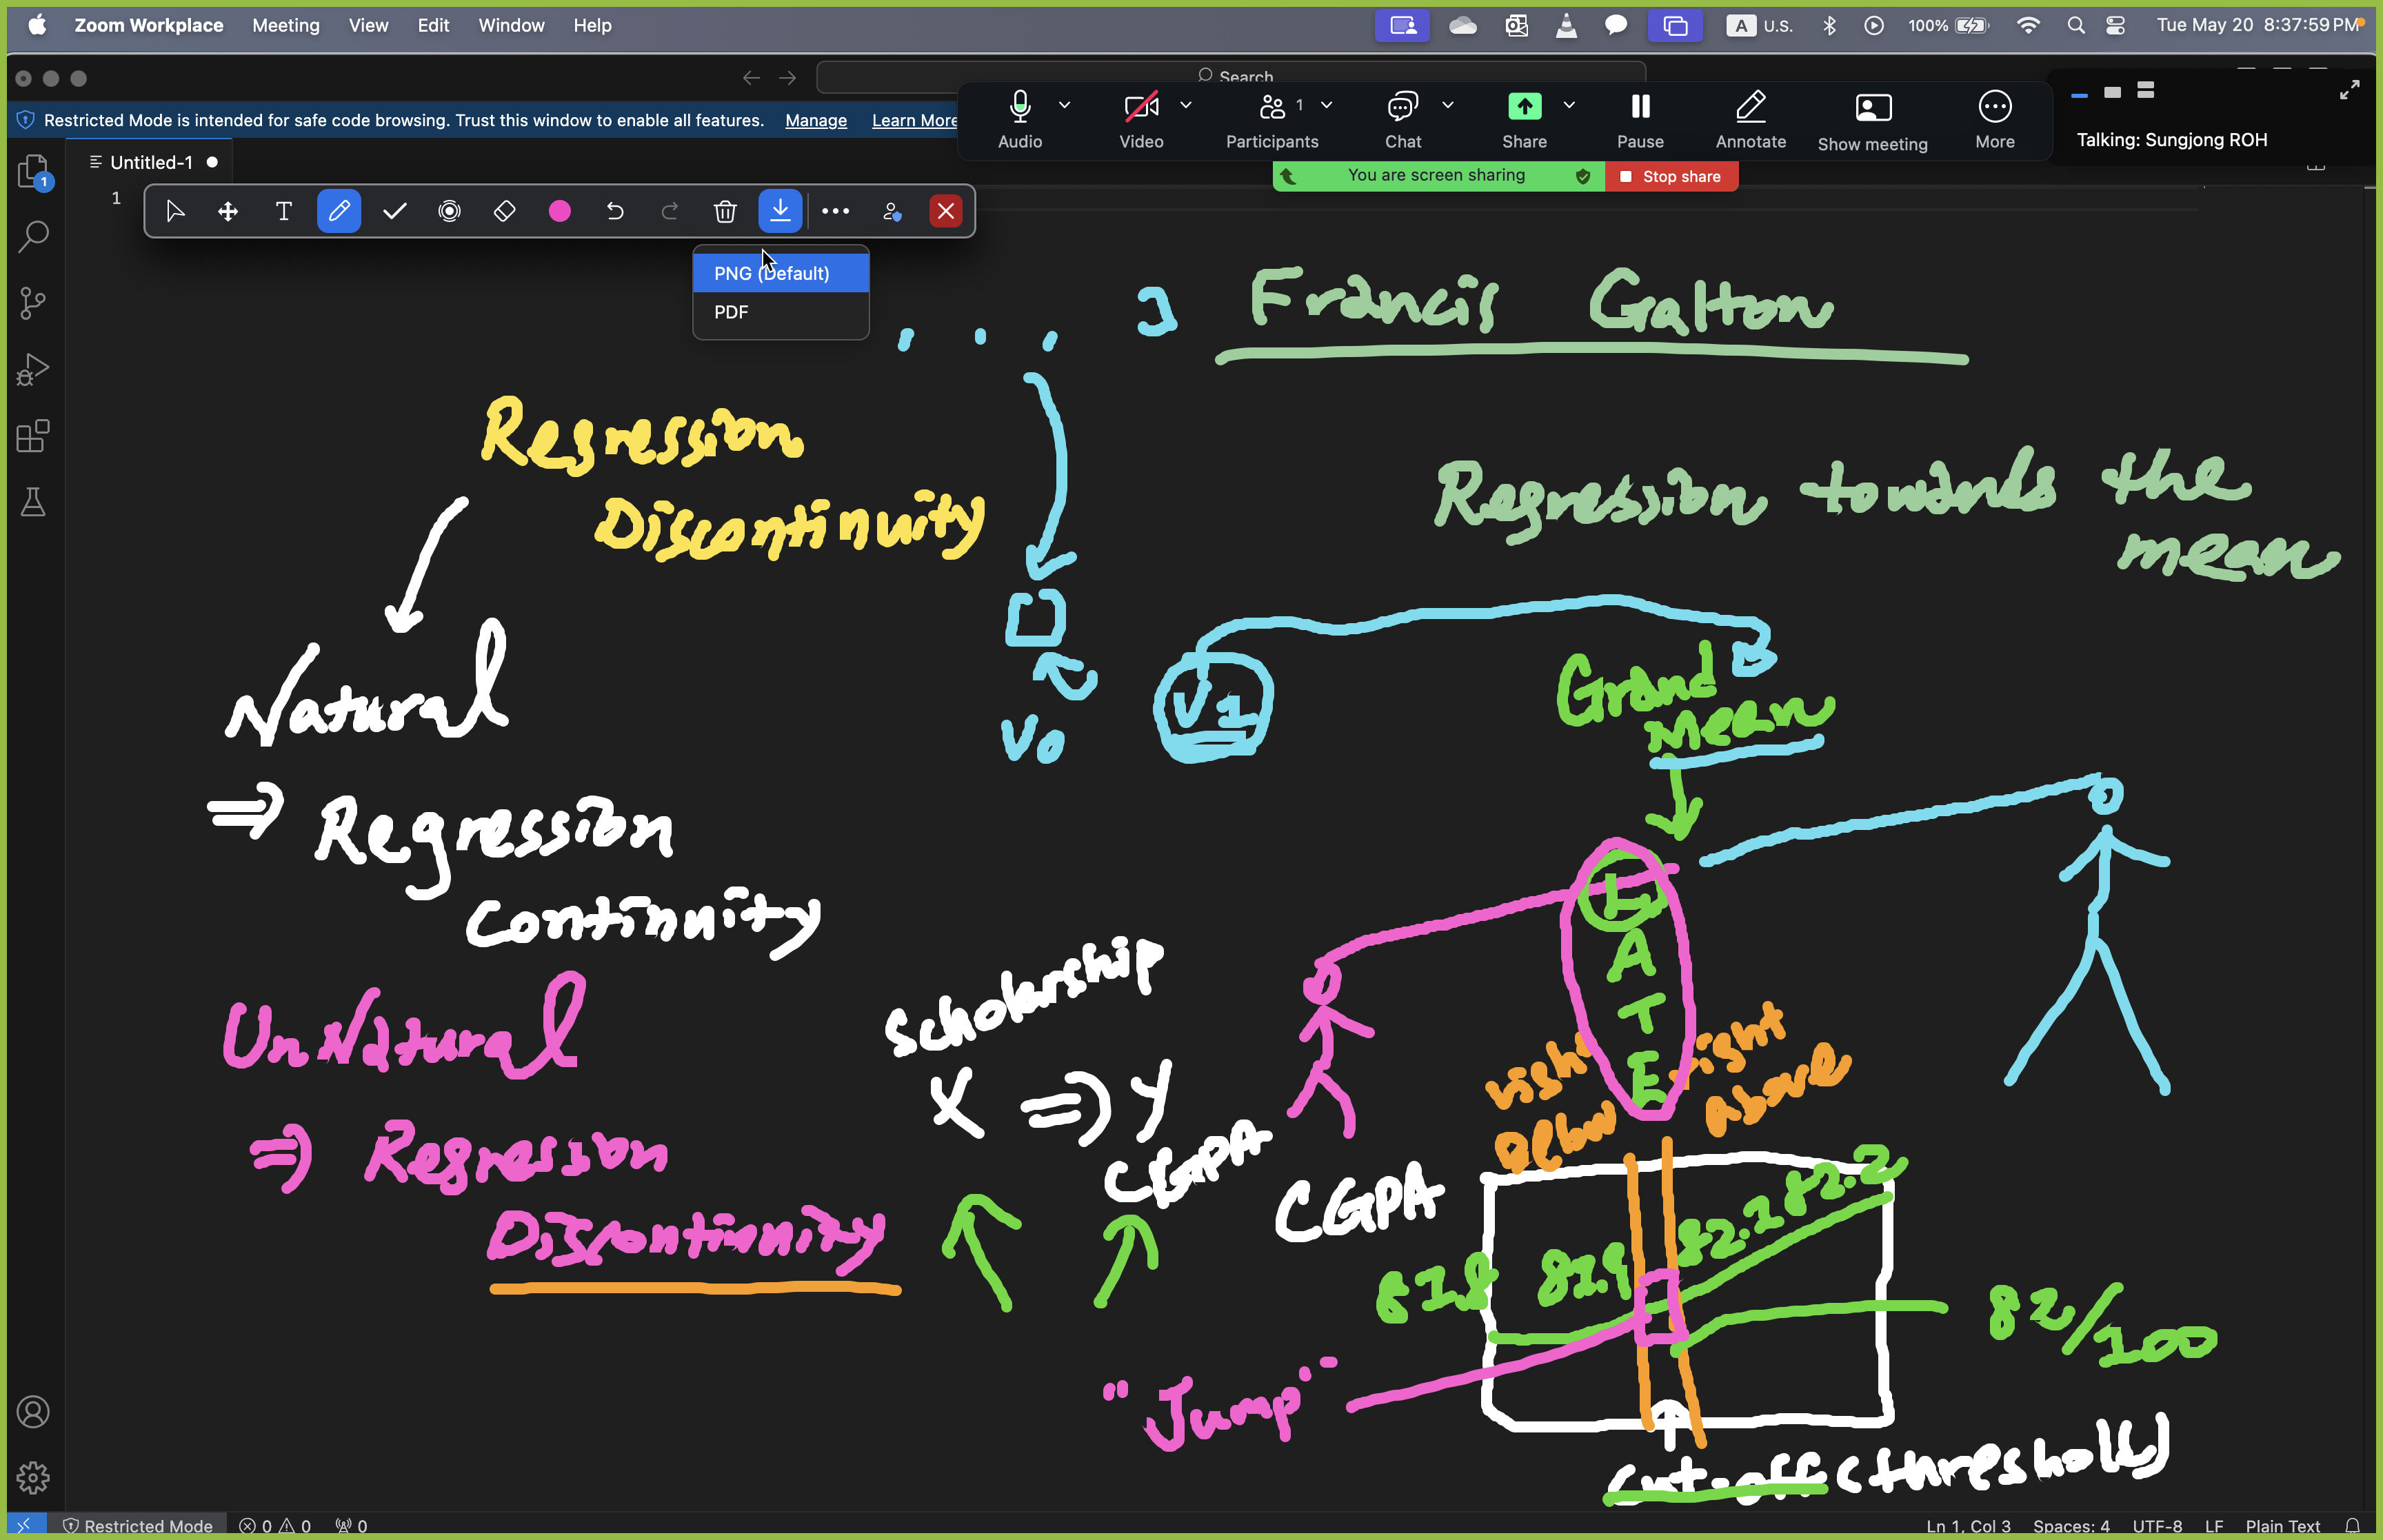 Zoom Workplace Meeting View Edit Window Help
A U.S. 100% Tue May 20 8:37:59 PM
Search
Restricted Mode is intended for safe code browsing. Trust this window to enable all features. Manage Learn More
Audio Video Participants 1 Chat Share Pause Annotate Show meeting More
Talking: Sungjong ROH
You are screen sharing Stop share
1
Untitled-1
1
T
PNG (Default)
PDF
Francis Galton
Regression
Discontinuity
Regression towards the
mean
Natural
V0
V1
Grand
Mean
⇒ Regression
Continuity
L
A
T
E
UnNatural
⇒ Regression
Discontinuity
Scholarship
X ⇒ Y
CGPA
right
Above
CGPA
81.8 81.9 82.1 82.2
82/100
"Jump"
cut-off (threshold)
Restricted Mode 0 0 0
Ln 1, Col 3 Spaces: 4 UTF-8 LF Plain Text